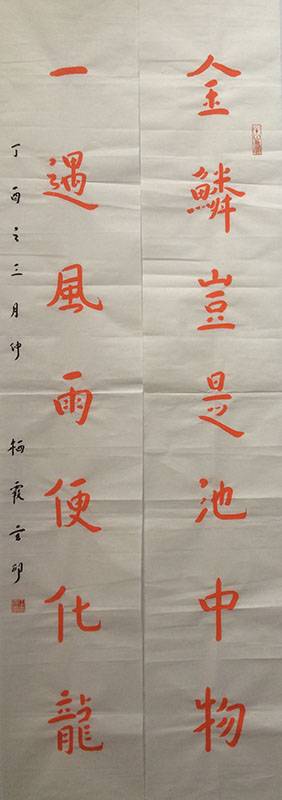 金鱗豈是池中物
一遇風雨便化龍
丁酉之三月仲 栖霞